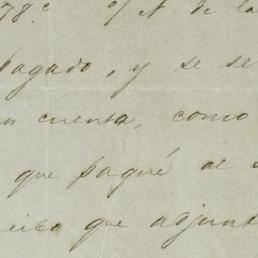 78.c º/ N de la
pagado, y se se
en cuenta, como
que pagué al
recibo que adjunt